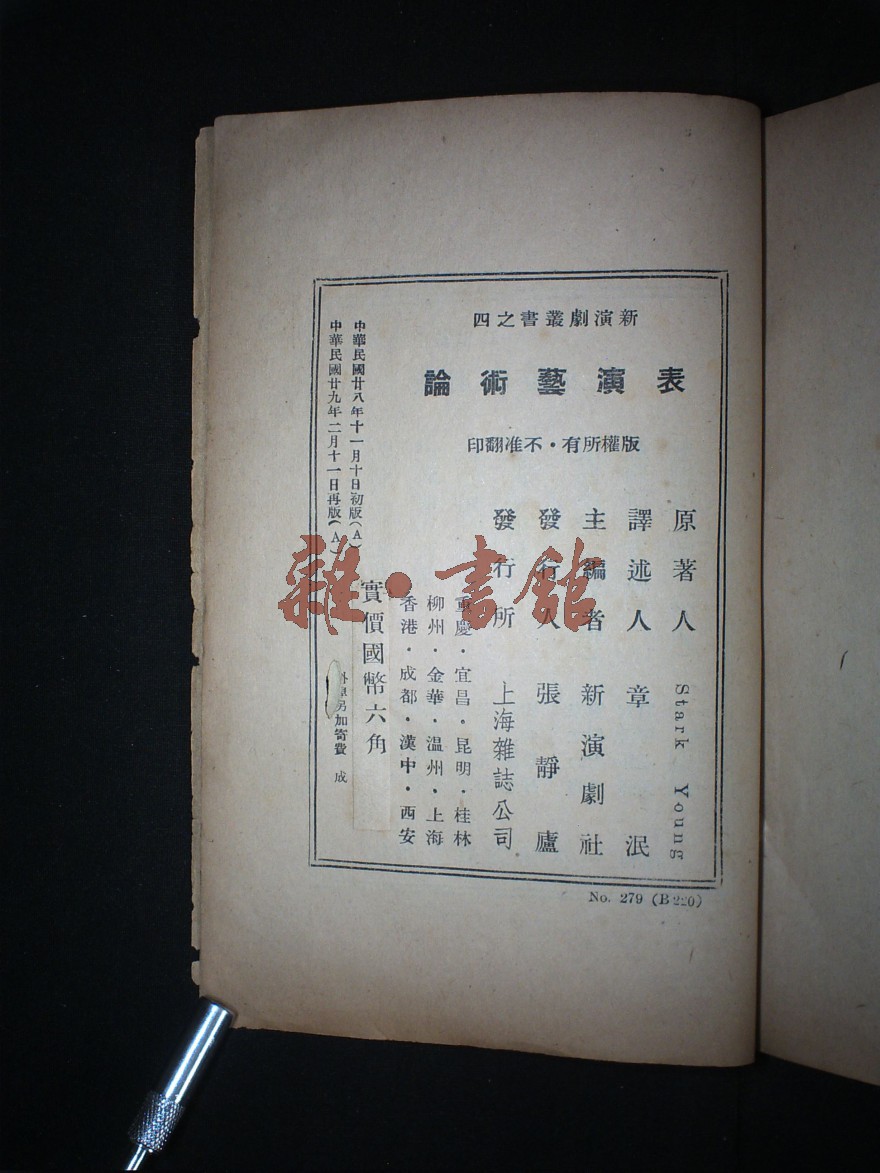 新演劇叢書之四
表演藝術論
版權所有・不准翻印
原著人 Stark Young
譯述人 章泯
主編者 新演劇社
發行人 張靜廬
發行所 上海雜誌公司
重慶・宜昌・昆明・桂林
柳州・金華・温州・上海
香港・成都・漢中・西安
實價國幣六角
另加寄費 成
中華民國廿八年十一月十日初版(A)
中華民國廿九年二月十一日再版(A)
No. 279 (B 220)
雜・書館